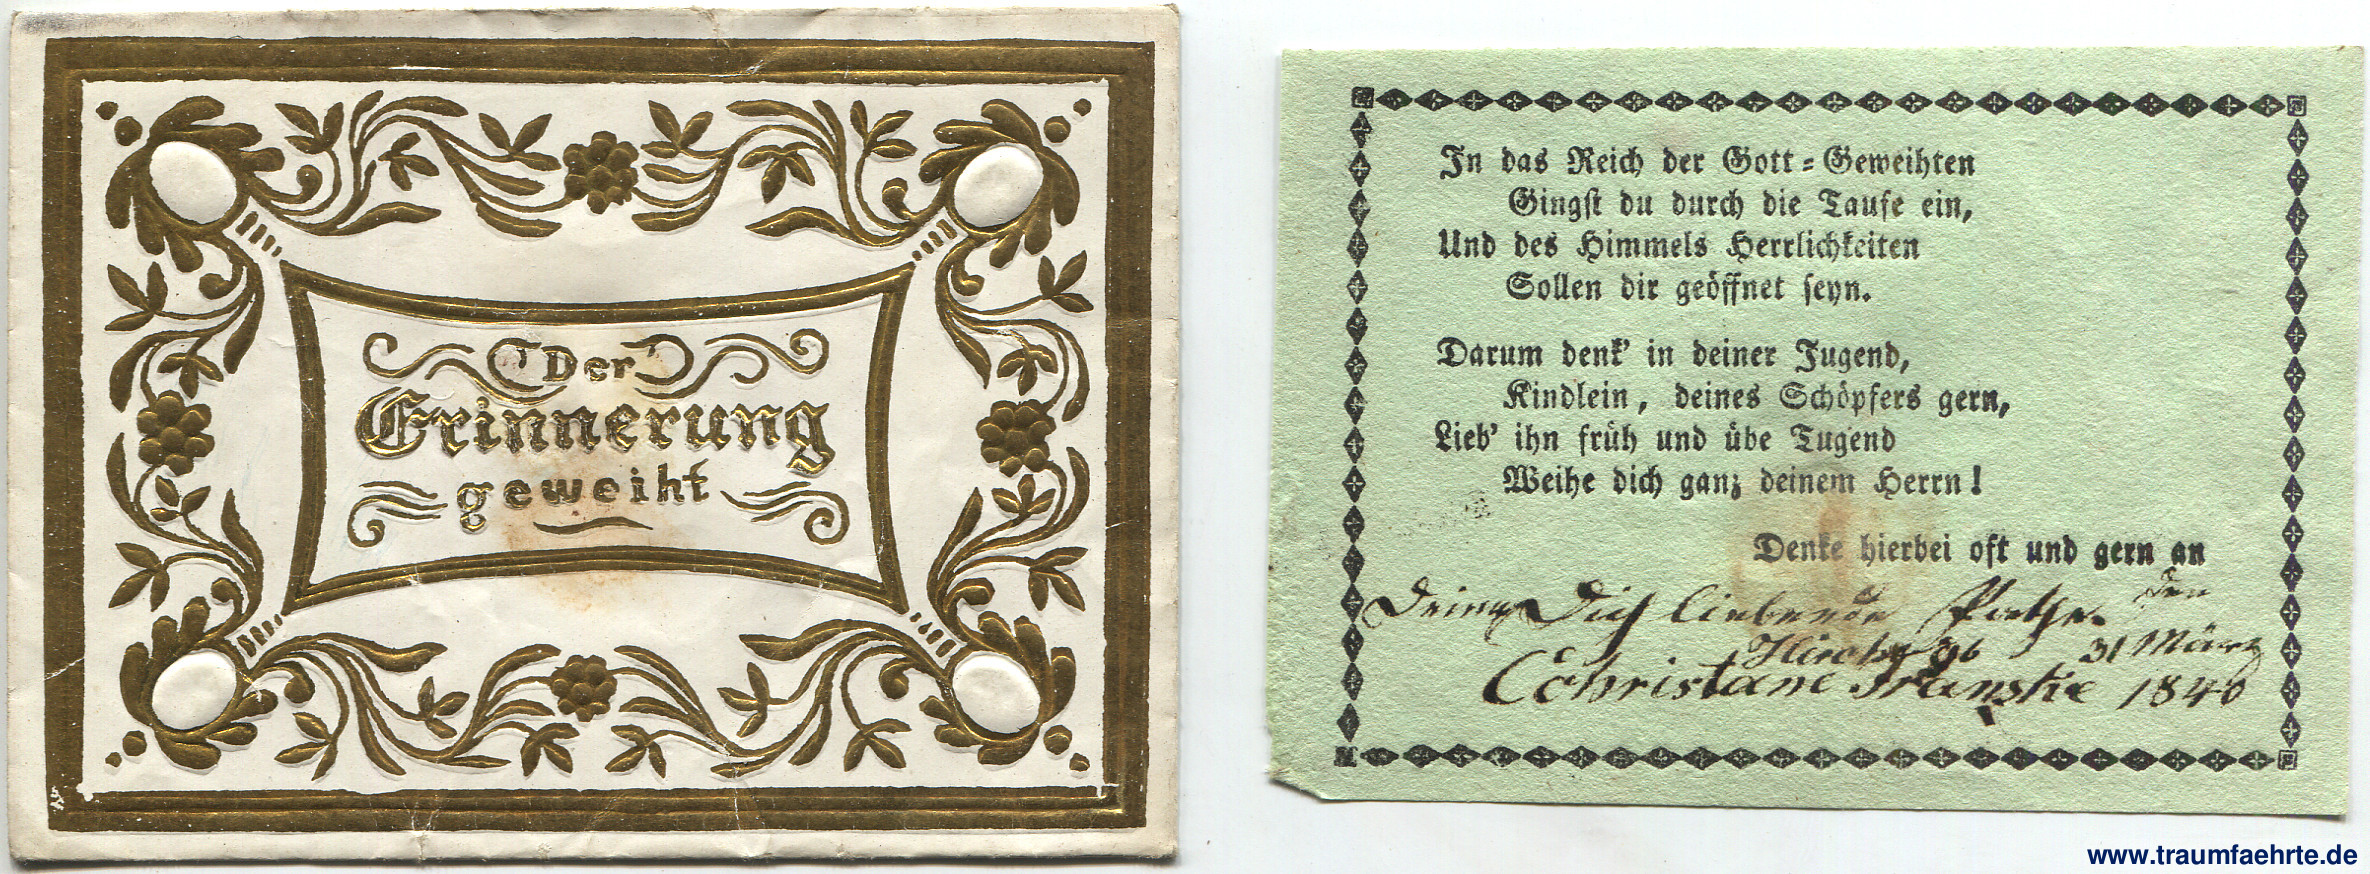 Der
Erinnerung
geweiht
In das Reich der Gott=Geweihten
Gingst du durch die Taufe ein,
Und des Himmels Herrlichkeiten
Sollen dir geöffnet seyn.
Darum denk' in deiner Jugend,
Kindlein, deines Schöpfers gern,
Lieb' ihn früh und übe Tugend
Weihe dich ganz deinem Herrn!
Denke hierbei oft und gern an
Deine Dich liebende Pathe. den
31 März
1840
www.traumfaehrte.de